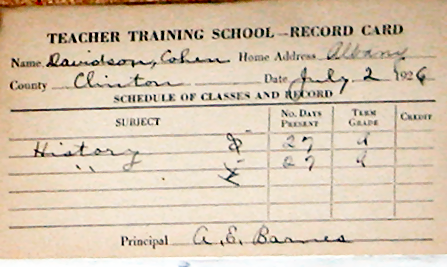 TEACHER TRAINING SCHOOL—RECORD CARD
Name Davidson, Cohen Home Address Albany
County Clinton Date July 2 1926
SCHEDULE OF CLASSES AND RECORD
SUBJECT No. DAYS PRESENT TERM GRADE CREDIT
History 27
" 27
Principal A. E. Barnes